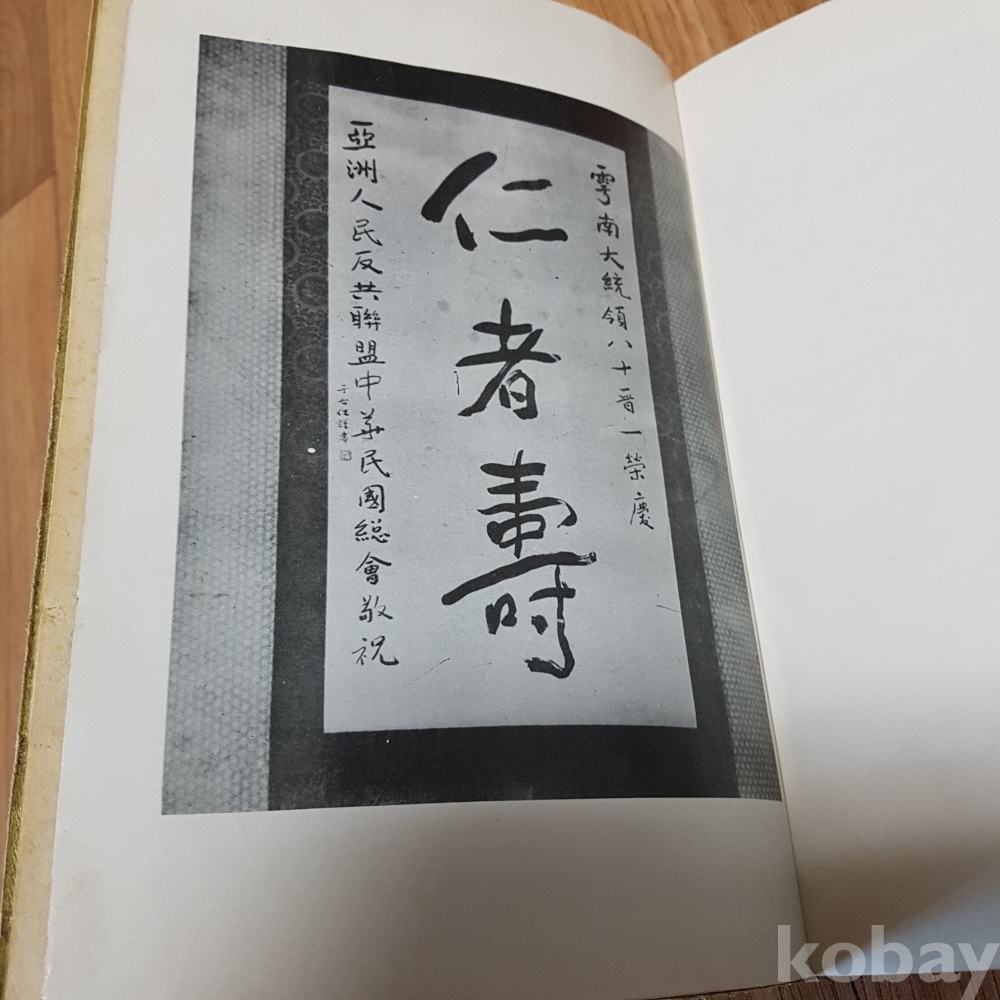 雩南大統領八十晋一榮慶
仁者壽
亞洲人民反共聯盟中華民國總會敬祝
于右任謹書
kobay